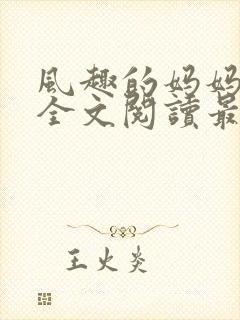 風趣的妈妈
全文閱讀最
王火炎